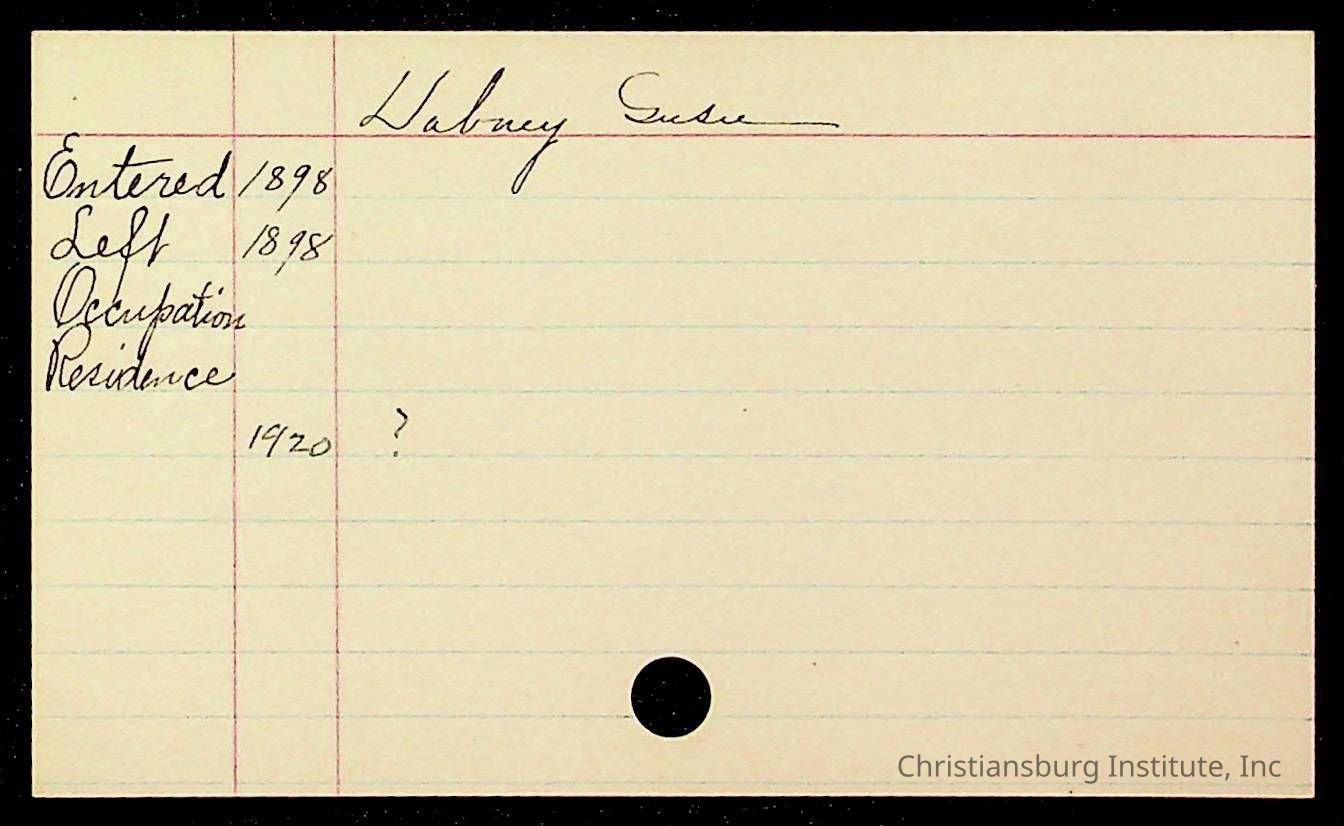 Dabney Susie
Entered 1898
Left 1898
Occupation
Residence
1920 ?
Christiansburg Institute, Inc